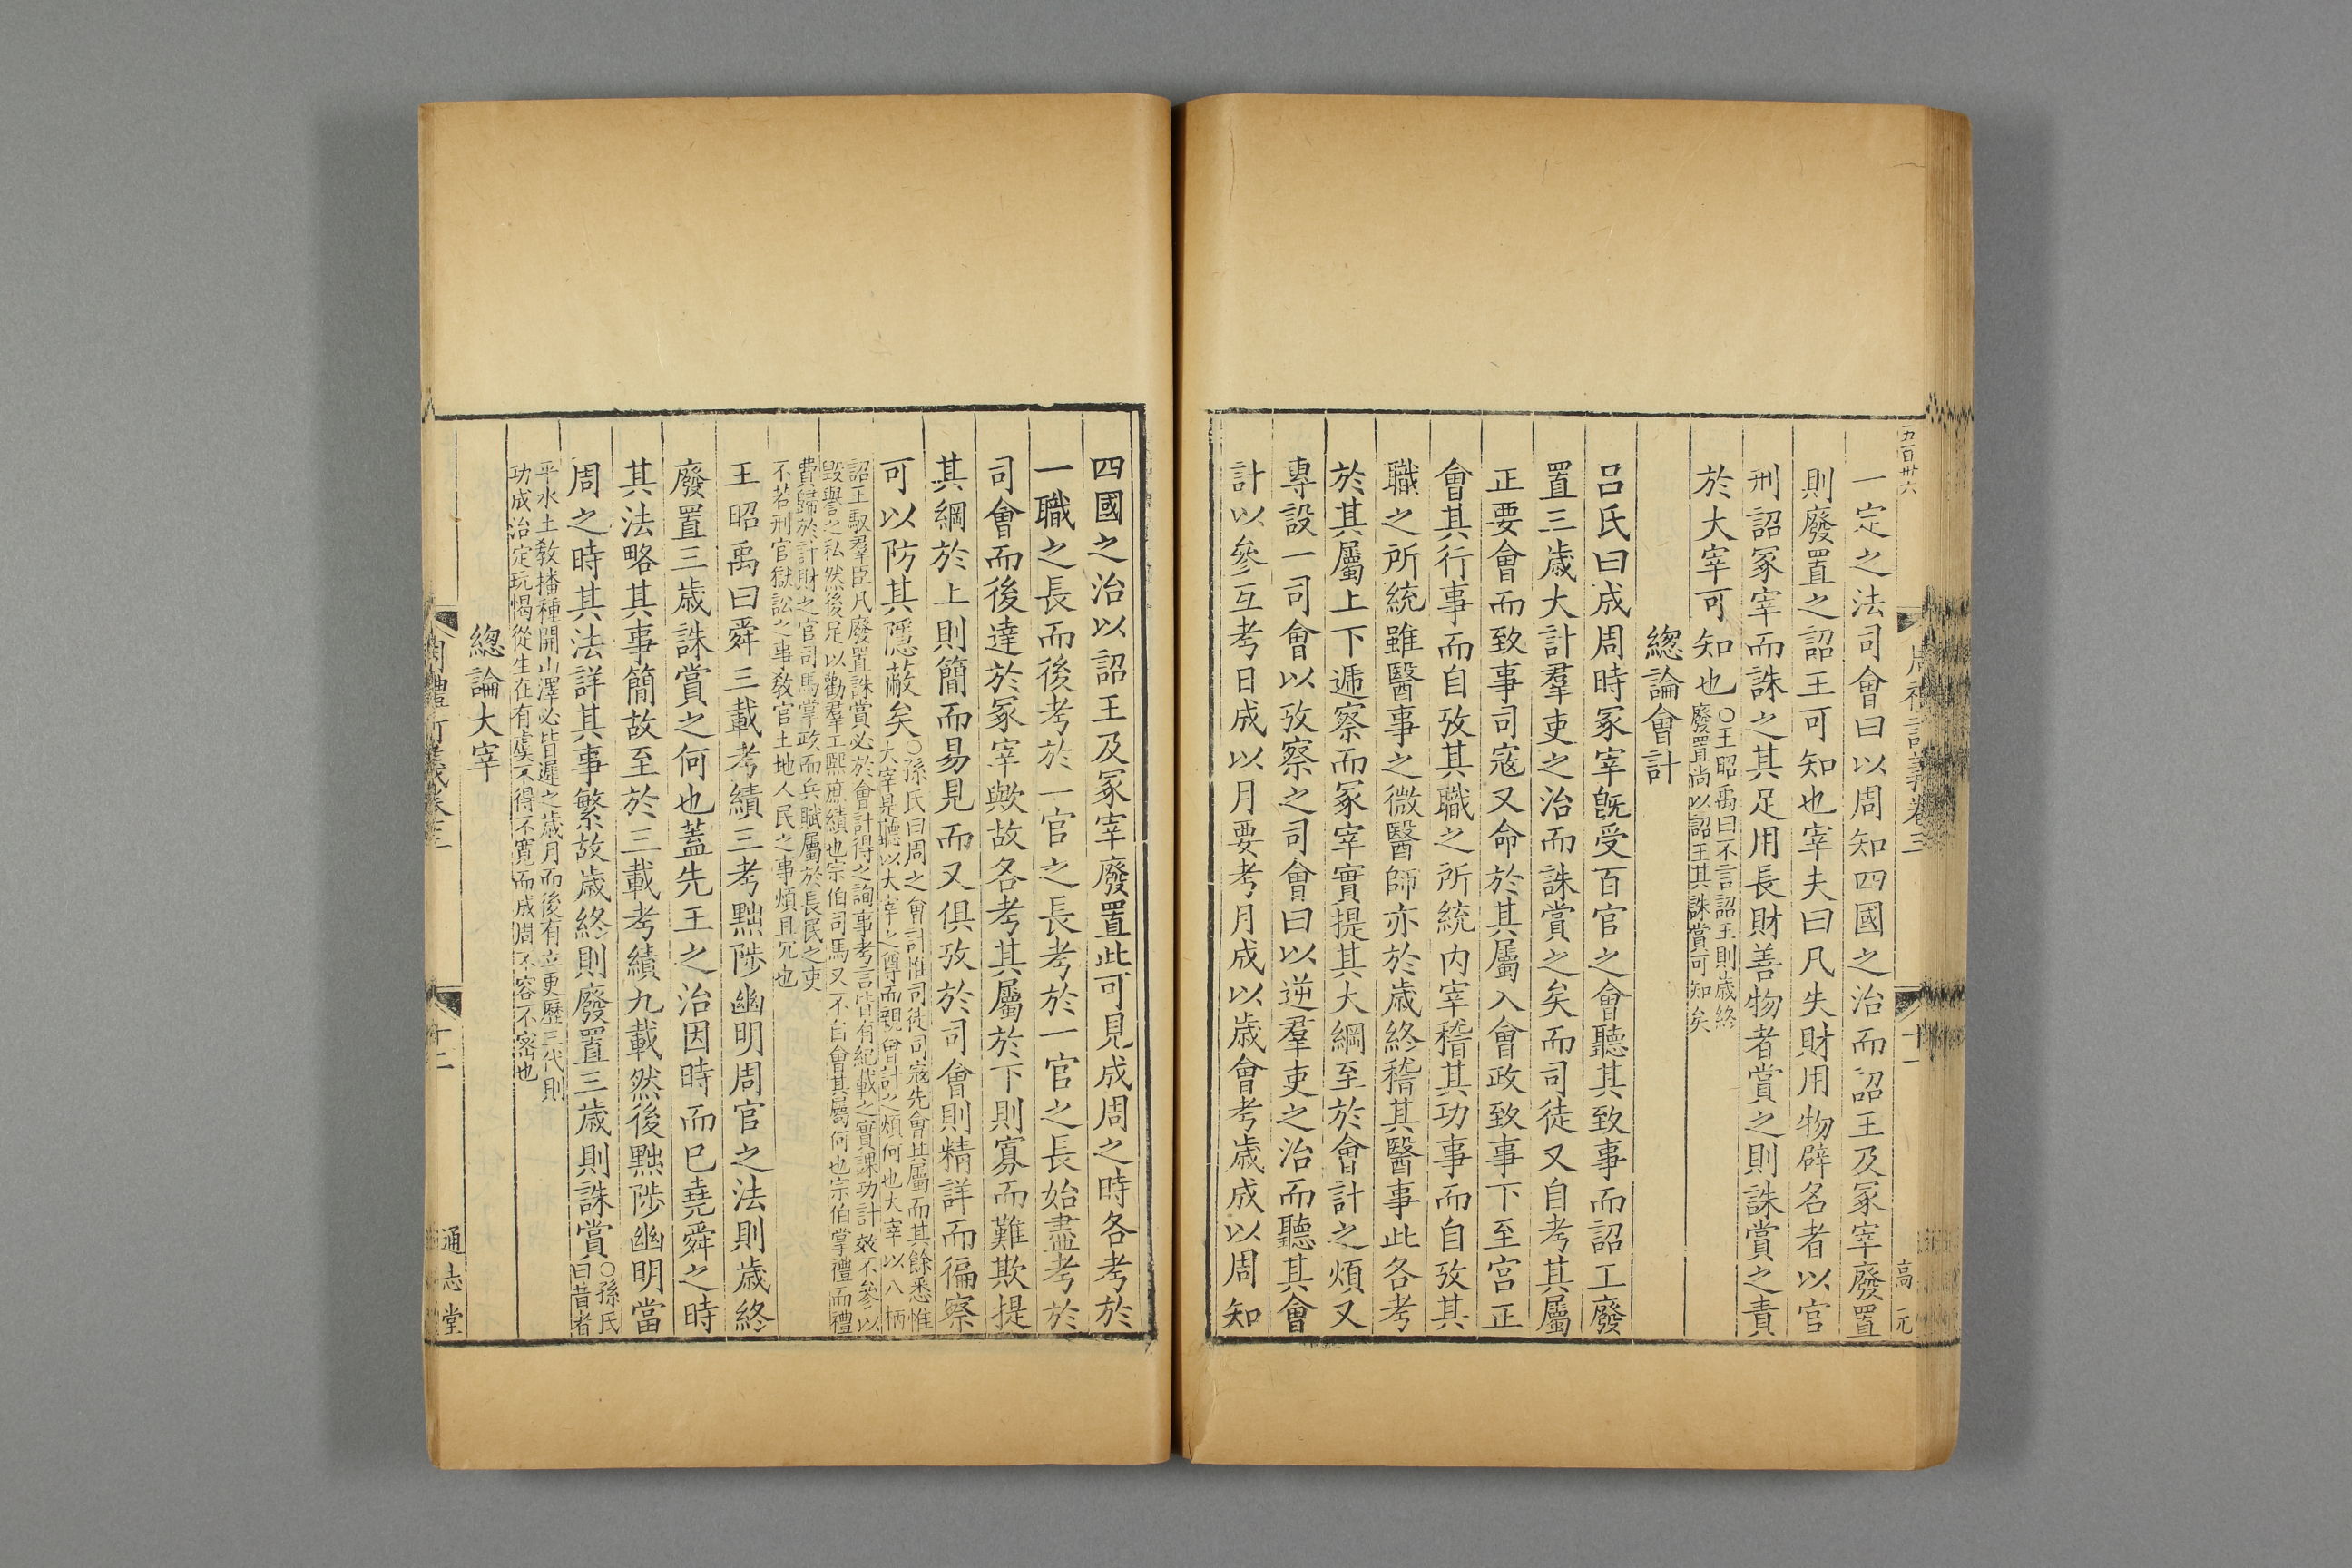 五百卅六
周禮訂義卷三
十一
高元
一定之法司會曰以周知四國之治而詔王及冢宰廢置
則廢置之詔王可知也宰夫曰凡失財用物辟名者以官
刑詔冢宰而誅之其足用長財善物者賞之則誅賞之責
於大宰可知也
○王昭禹曰不言詔王則歲終
廢置尚以詔王其誅賞可知矣
總論會計
呂氏曰成周時冢宰旣受百官之會聽其致事而詔工廢
置三歲大計羣吏之治而誅賞之矣而司徒又自考其屬
正要會而致事司寇又命於其屬入會政致事下至宮正
會其行事而自攷其職之所統內宰稽其功事而自攷其
職之所統雖醫事之微醫師亦於歲終稽其醫事此各考
於其屬上下遞察而冢宰實提其大綱至於會計之煩又
專設一司會以攷察之司會曰以逆羣吏之治而聽其會
計以參互考日成以月要考月成以歲會考歲成以周知
四國之治以詔王及冢宰廢置此可見成周之時各考於
一職之長而後考於一官之長考於一官之長始盡考於
司會而後達於冢宰歟故各考其屬於下則寡而難欺提
其綱於上則簡而易見而又俱攷於司會則精詳而徧察
可以防其隱蔽矣
○孫氏曰周之會計惟司徒司寇先會其屬而其餘悉惟
大宰是聽以大宰之尊而親會計之煩何也大宰以八柄
詔王馭羣臣凡廢置誅賞必於會計得之詢事考言皆有紀載之實課功計效不參以
毀譽之私然後足以勸羣工熙庶績也宗伯司馬又不自會其屬何也宗伯掌禮而禮
費歸於計財之官司馬掌政而兵賦屬於長民之吏
不若刑官獄訟之事敎官土地人民之事煩且冗也
王昭禹曰舜三載考績三考黜陟幽明周官之法則歲終
廢置三歲誅賞之何也蓋先王之治因時而已堯舜之時
其法略其事簡故至於三載考績九載然後黜陟幽明當
周之時其法詳其事繁故歲終則廢置三歲則誅賞
○孫氏
曰昔者
平水土敎播種開山澤必皆遲之歲月而後有立更歷三代則
功成治定玩愒從生在有虞不得不寬而成周不容不密也
總論大宰
周禮訂義卷三
十二
通志堂